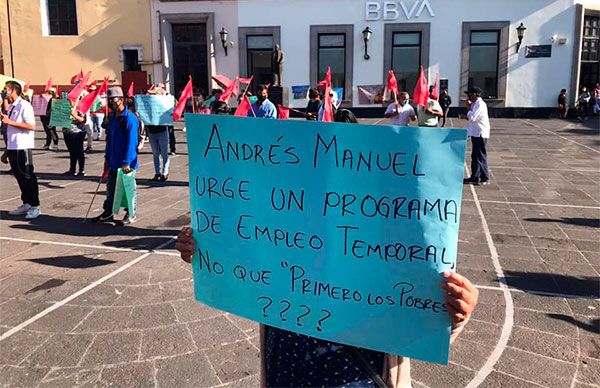 BBVA
ANDRÉS MANUEL
URGE UN PROGRAMA
DE EMPLEO TEMPORAL,
NO QUE "PRIMERO LOS POBRES
????